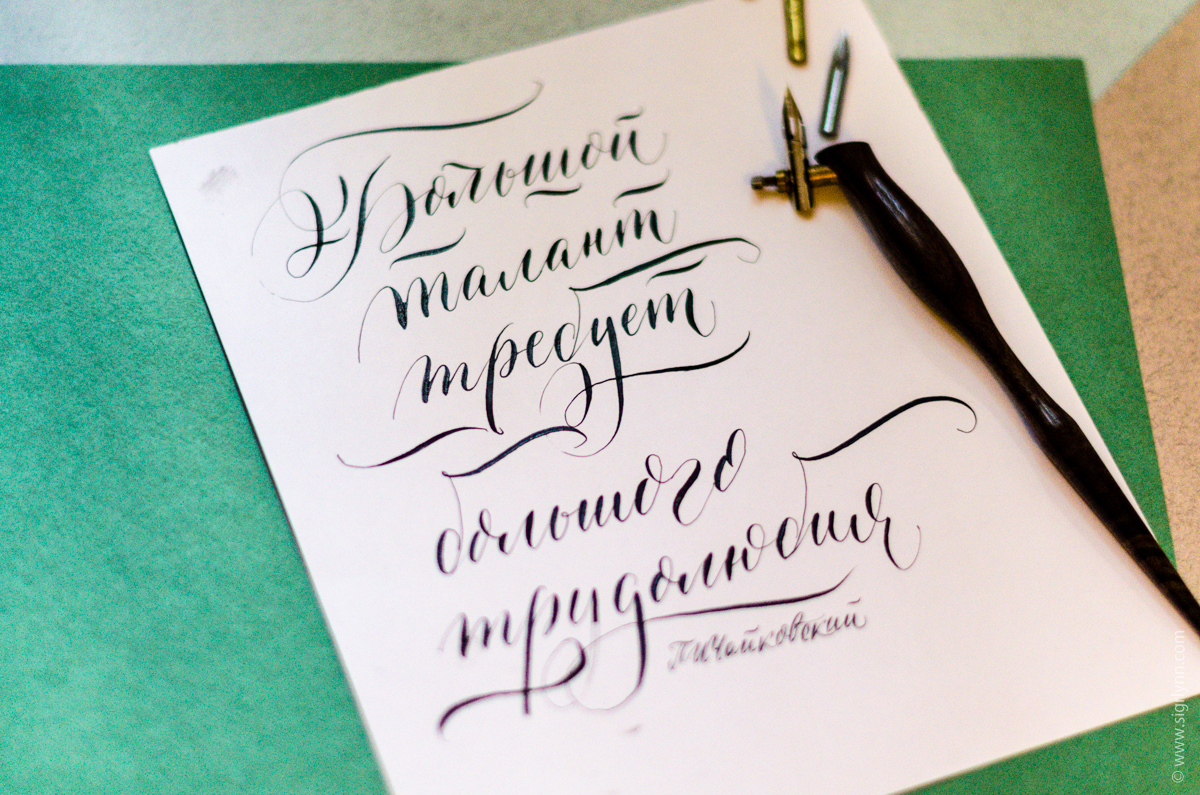 Большой
талант
требует
большого
трудолюбия
П.И.Чайковский
© www.sightinn.com